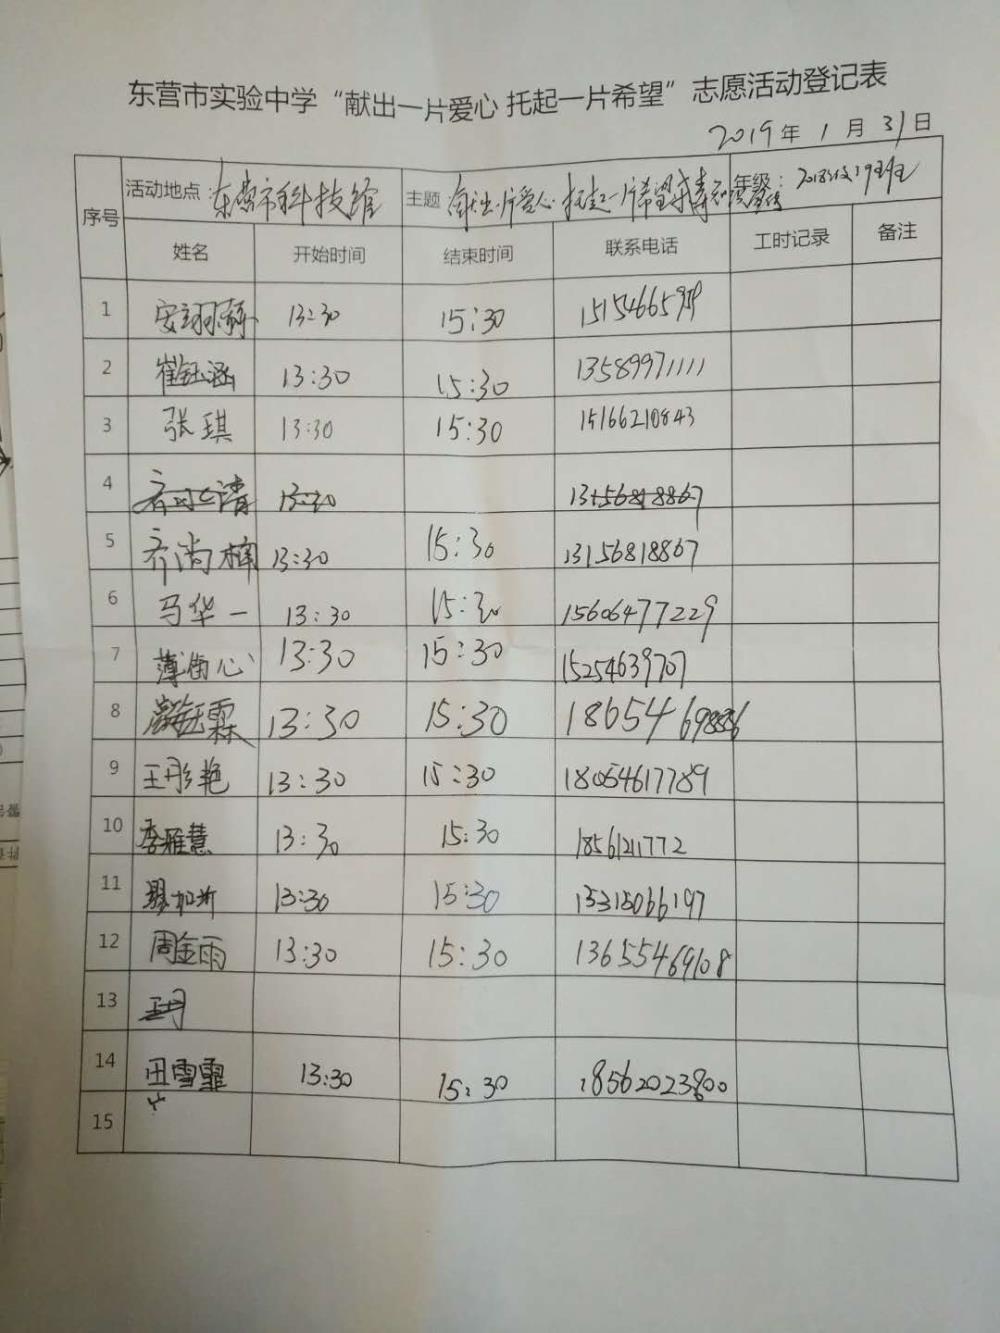 东营市实验中学“献出一片爱心 托起一片希望”志愿活动登记表
2019年 1 月 31 日
序号 活动地点：东营市科技馆 主题 献出一片爱心 托起一片希望 年级： 2018级19班
姓名 开始时间 结束时间 联系电话 工时记录 备注
1 13:30 15:30
2 崔钰涵 13:30 15:30 13589971111
3 张琪 13:30 15:30 15166210843
4 13:30 13156818867
5 齐尚楠 13:30 15:30 13156818867
6 马华一 13:30 15:30 15606477229
7 13:30 15:30 15254639707
8 13:30 15:30
9 王彤艳 13:30 15:30 18054617789
10 李雅慧 13:30 15:30 1856121772
11 13:30 15:30 15315066197
12 周金雨 13:30 15:30 13655469108
13
14 田雪霏 13:30 15:30 18562023800
15